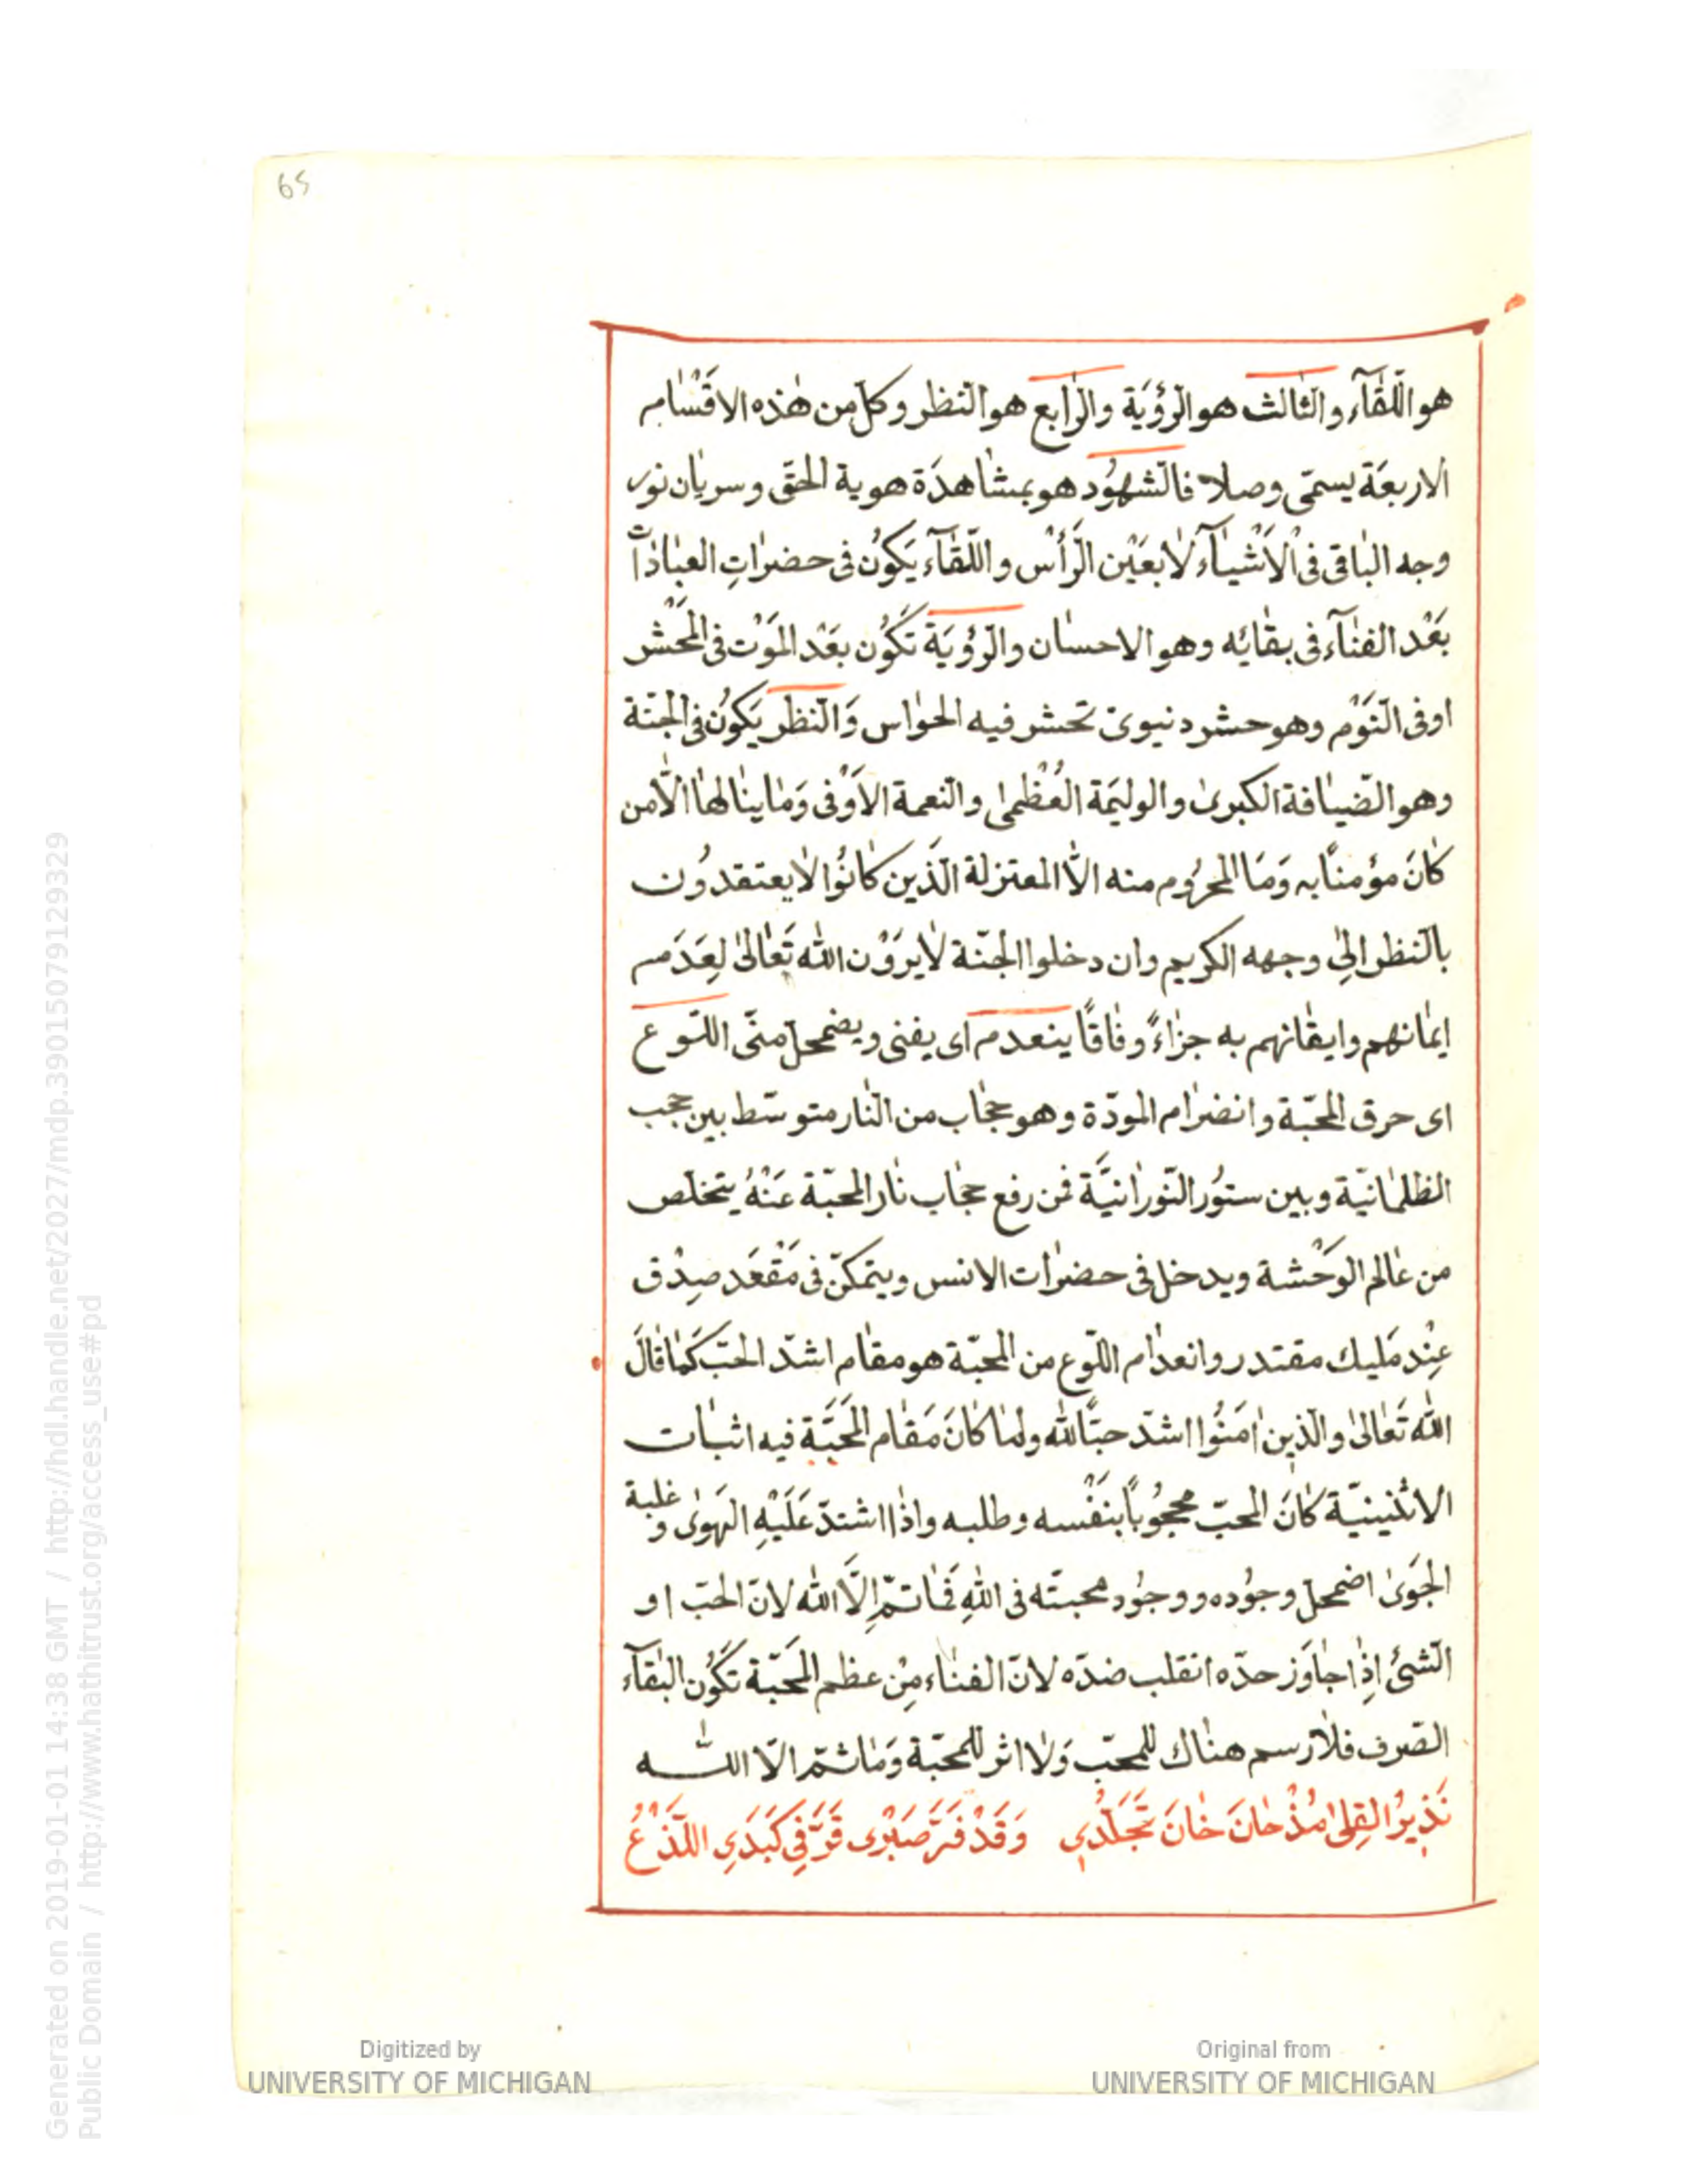 65
هو اللّقٰآء والثالث هو الرّؤْيَة والرّابع هو النظر وكلّ من هٰذه الاقْسَام
الاربعَة يسمّى وصلا فالشهوُد هو بمشاهدَة هوية الحقّ وسريان نور
وجه الباقى فى الْاَشْيَآء لا بعَيْن الرَّأْس واللّقٰآء يَكوُن فى حضراتِ العبادات
بَعْد الفنٰآء فى بقٰائه وهو الاحسان والرّؤيَة تَكُون بَعْد المَوْت فى المَحْشر
اوفى النَوْم وهو حشر دنيوىّ تحشر فيه الحواس وَالنّظر يَكوُن فى الجنّة
وهو الضّيافة الكبرىٰ والوليَمة العُظْمىٰ والنّعمة الاَوْفى وَمَا ينالهٰا الّا من
كانَ مؤمناً به وَمَا المحرُوم منه الاّ المعتزلة الّذين كانُوا لا يعتقدوُن
بالنّظر الىٰ وجهه الكريم وان دخلوا الجنّة لا يروَوْن الله تَعٰالىٰ لِعَدَم
ايمانهم وايقانهم به جزاءً وفٰاقًا ينعدم اى يفنى ويضمحلّ منّى اللوع
اى حرق المحبّة وانضرام المودّة وهو حجٰاب من النّار متوسّط بين حجب
الظلمانيّة وبين ستوُر النّورانيَّة فمن رفع حجاب نار المحبّة عَنْهُ يتخلّص
من عٰالم الوَحْشة ويدخل فى حضرات الانس ويتمكّن فى مَقْعَد صِدْق
عِنْد مَليك مقتدر وانعدٰام اللّوع من المحبّة هو مقام اشدّ الحبّ كَمَا قالَ
الله تَعٰالىٰ والّذين اٰمَنُوا اشدّ حبًّا لله ولمٰا كانَ مَقام المَحَبَّة فيه اثبات
الاثنينيّة كانَ المحبّ محجُوباً بنَفْسه وطلبه واذٰا اشتدّ عَلَيْهِ الهَوىٰ وغلبة
الجَوىٰ اضمحلّ وجوُده ووجوُد محبتّه فى اللهِ فَمٰا ثمّ اِلاَّ الله لانّ الحبّ او
الشئ اِذٰا جٰاوَز حدّه انقلب ضدّه لانّ الفنٰاء مِنْ عظم المَحَبّة تكُون البقٰآء
الصّرف فلا رسم هنٰاك للمحبّ وَلا اثر للمحبّة وَمٰا ثمّ الاّ اللّه
نَذِيرُ القِلىٰ مُذْ حٰانَ خٰانَ تَجَلّدُى وَقَدْ فَرَّ صَبْرى قَرَّ فِي كَبَدِي اللّذْعُ
Digitized by
UNIVERSITY OF MICHIGAN
Original from
UNIVERSITY OF MICHIGAN
Generated on 2019-01-01 14:38 GMT / http://hdl.handle.net/2027/mdp.39015079129329
Public Domain / http://www.hathitrust.org/access_use#pd